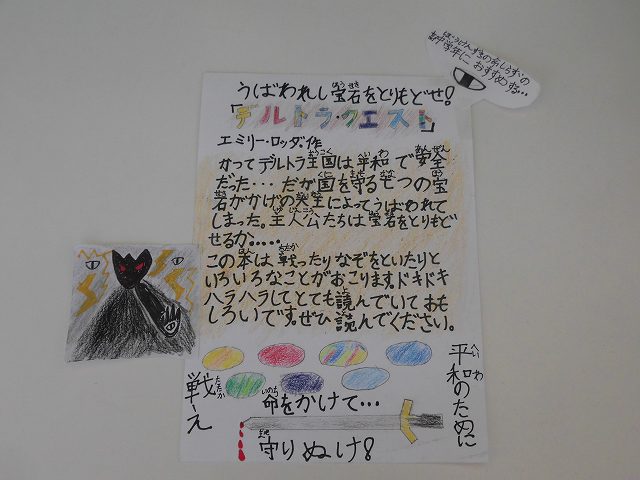 ぼうけんずきの命しらずの
高中学年におすすめするよ…
うばわれし宝石をとりもどせ!
「デルトラ・クエスト」
エミリー・ロッダ・作
かってデルトラ王国は平和で安全
だった・・・だが国を守る七つの宝
石がかげの大王によってうばわれて
しまった。主人公たちは宝石をとりもど
せるか……
この本は戦ったりなぞをといたりと
いろいろなことがおこります。ドキドキ
ハラハラしてとても読んでいておも
しろいです。ぜひ読んでください。
平和のために
戦え
命をかけて…
守りぬけ!